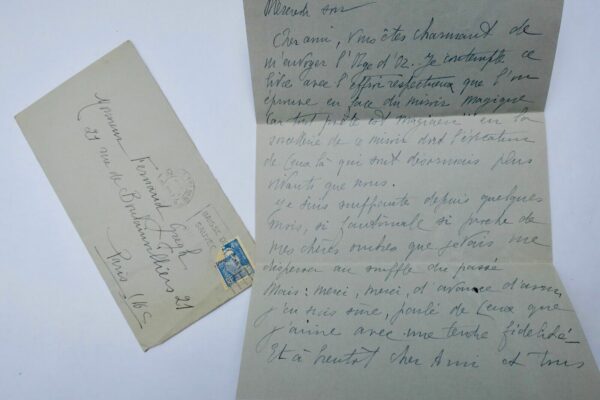 Mercredi soir
Cher ami, vous êtes charmant de
m'envoyer l'Age d'Or. Je contemple ce
livre avec l'effroi respectueux que l'on
éprouve en face du miroir magique
tout poète est magicien en la
sorcellerie de ce miroir dont l'évocation
de ceux là qui sont désormais plus
vivants que nous.
Je suis souffrante depuis quelques
mois, si fantômale si proche de
mes chères ombres que je vais me
disperser au souffle du passé
Mais: merci, merci, d'avance d'avoir,
j'en suis sure, parlé de ceux que
j'aime avec une tendre fidélité
Et à bientôt cher Ami et tous
Monsieur Fernand Gregh
21 rue de Boulainvilliers 21
Paris (16e